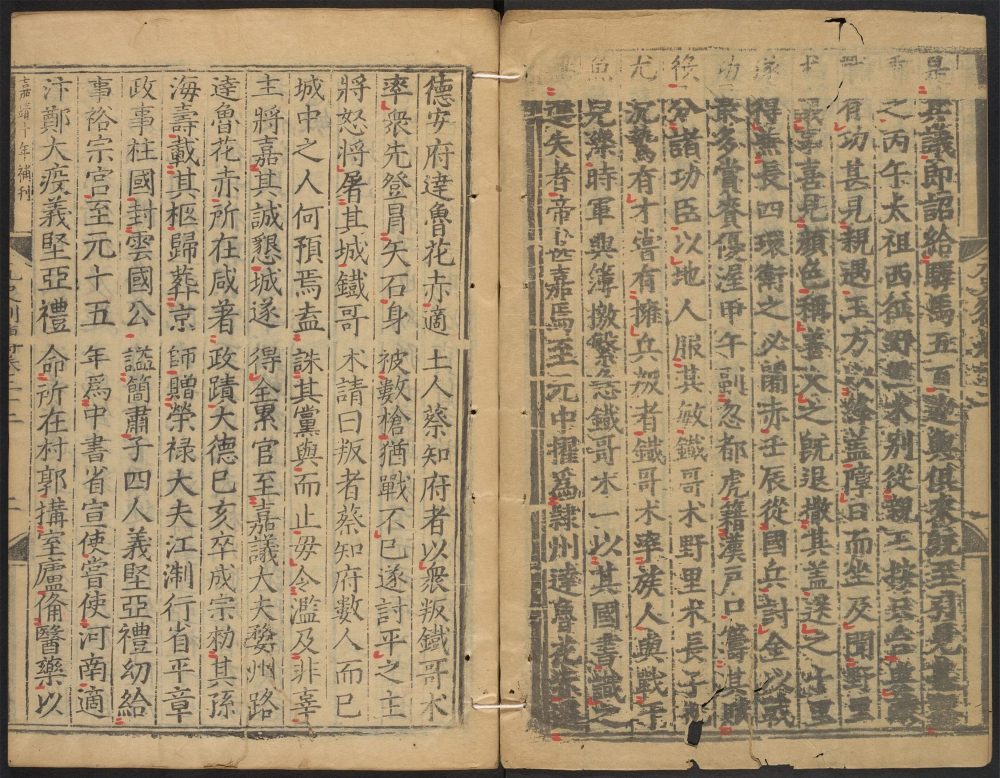 其議即詔給驛馬五百遣與俱來既至引見
之丙午太祖西征野里朮別從親王按只台
有功甚見親遇王方以蓋障日而坐及聞野里
朮議喜見顏色稱善久之既退撤其蓋送之十里
遂得兼長四環衛之必闍赤壬辰從國兵討金以戰
功最多賞賚優渥甲午副忽都虎籍漢戶口籌其賦
役分諸功臣以地人服其敏鐵哥朮野里朮長子
尤沉鷙有才嘗有擁兵叛者鐵哥朮率族人與戰于
魚兒濼時軍興簿檄繁急鐵哥朮一以其國書識之
遺失者帝甚嘉焉至元中擢爲隸州達魯花赤
德安府達魯花赤適土人蔡知府者以衆叛鐵哥朮
率衆先登冒矢石身被數槍猶戰不已遂討平之主
將怒將屠其城鐵哥朮請曰叛者蔡知府數人而已
城中之人何預焉盍誅其黨與而止毋令濫及非辜
主將嘉其誠懇城遂得全累官至嘉議大夫婺州路
達魯花赤所在咸著政蹟大德己亥卒成宗勑其孫
海壽載其柩歸葬京師贈榮祿大夫江淛行省平章
政事柱國封雲國公謚簡肅子四人義堅亞禮幼給
事裕宗宮至元十五年爲中書省宣使嘗使河南適
汴鄭大疫義堅亞禮命所在村郭搆室廬俻醫藥以
嘉靖十年補刊